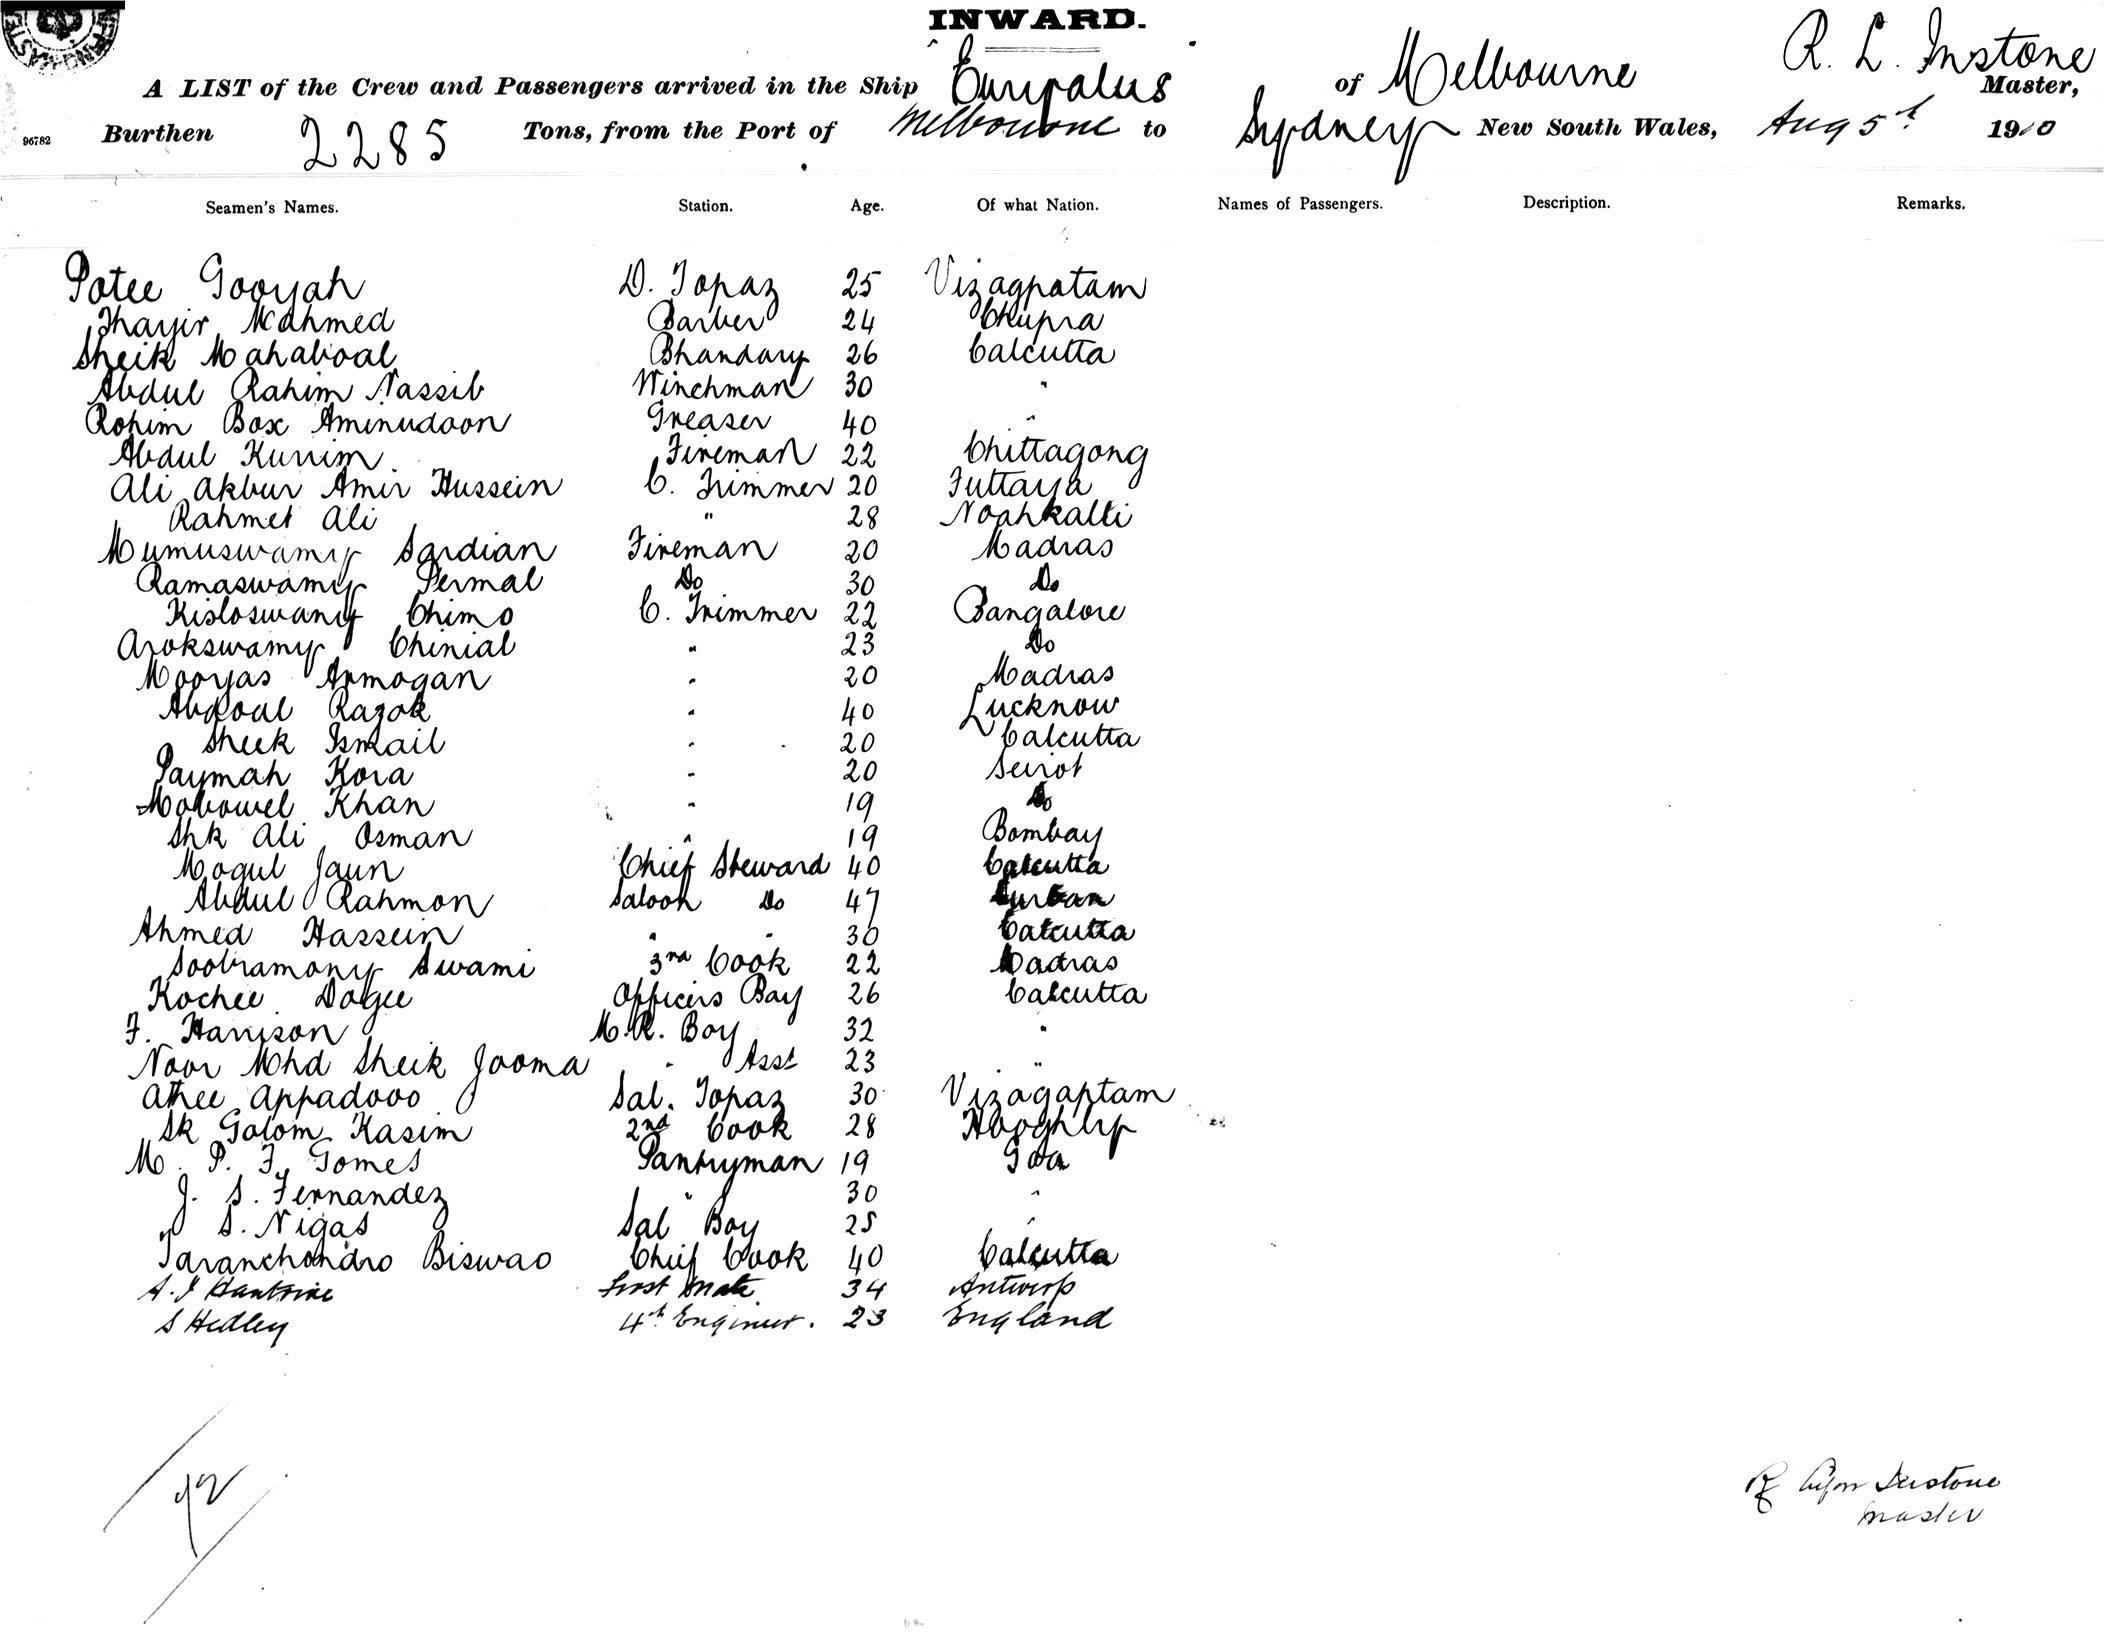 INWARD.
A LIST of the Crew and Passengers arrived in the Ship Euryalus of Melbourne R. L. Instone Master,
96782 Burthen 2285 Tons, from the Port of Melbourne to Sydney New South Wales, Aug 5th 1910
Seamen's Names. Station. Age. Of what Nation. Names of Passengers. Description. Remarks.
Potee Gooyah D. Topaz 25 Vizagpatam
Thayir Mahmed Barber 24 Chupra
Sheik Mahaboal Bhandary 26 Calcutta
Abdul Rahim Nassib Winchman 30 "
Rohim Box Aminudoon Greaser 40 "
Abdul Kurrim Fireman 22 Chittagong
Ali Akbur Amir Hussein C. Trimmer 20 Futtaya
Rahmet Ali " 28 Noahkalli
Mumuswamy Sardian Fireman 20 Madras
Ramaswamy Permal Do 30 Do
Kisloswamy Chimo C. Trimmer 22 Bangalore
Arokswamy Chinial " 23 Do
Mooyas Armogan " 20 Madras
Abdoal Razak " 40 Lucknow
Sheek Ismail " 20 Calcutta
Paymah Kora " 20 Seirot
Mobowel Khan " 19 Do
Shk Ali Osman " 19 Bombay
Mogul Jaun Chief Steward 40 Calcutta
Abdul Rahmon Saloon Do 47 Durban
Ahmed Hassein " " 30 Calcutta
Soobramony Swami 3rd Cook 22 Madras
Kochee Dogee Officers Bay 26 Calcutta
F. Harrison M.R. Boy 32 "
Noor Mhd Sheik Jooma " Asst 23 "
Athee Appadooo Sal. Topaz 30 Vizagaptam
Sk Golom Kasim 2nd Cook 28 Hooghly
M. P. F. Gomes Pantryman 19 Goa
J. S. Fernandez " 30 "
" S. Nigas Sal Boy 25 "
Taranchondro Biswao Chief Cook 40 Calcutta
A. J First Mate 34 Antwerp
S Hedley 4th Engineer. 23 England
R Instone
Master